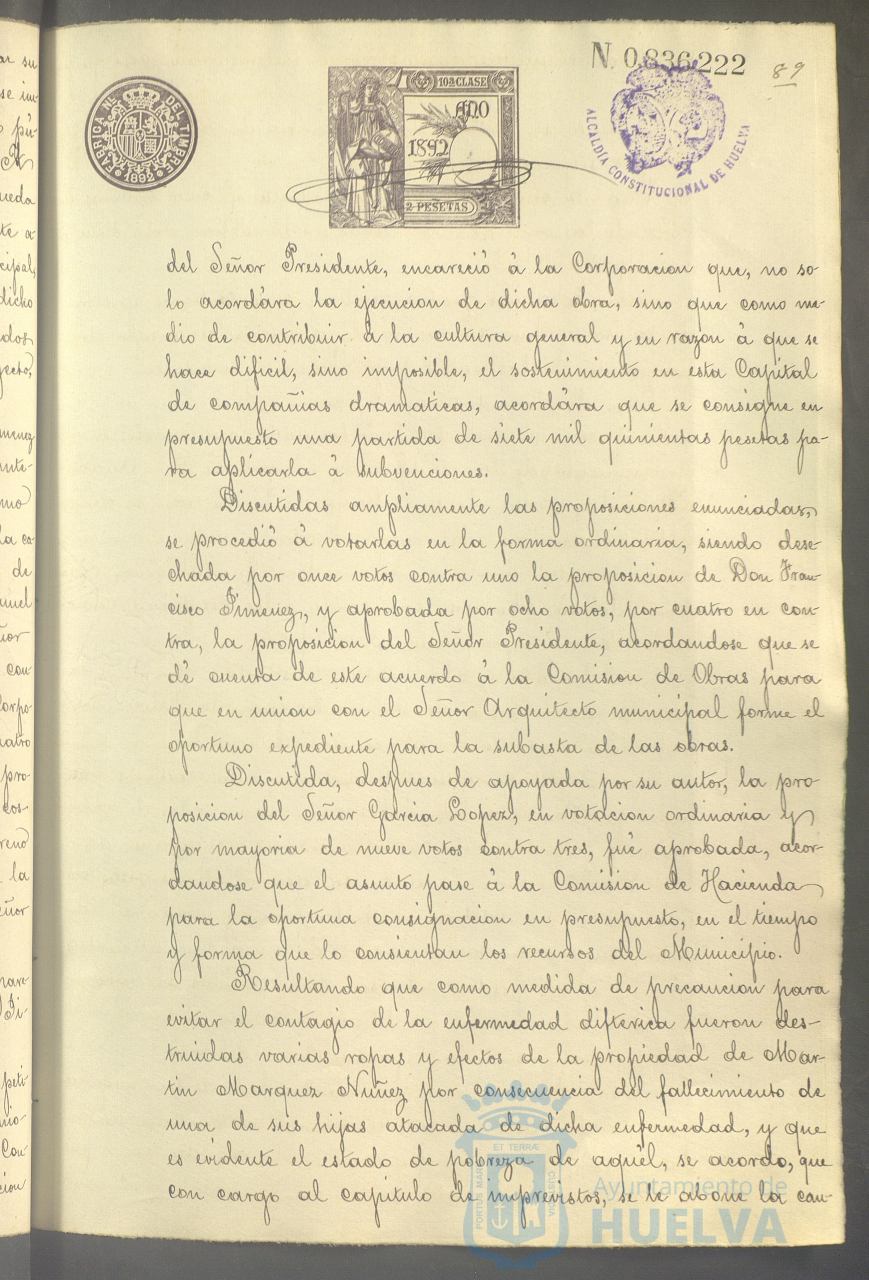 N. 0.836.222
89
FABRICA Nl. DEL TIMBRE
1892
10ª CLASE
AÑO
1892
2 PESETAS
ALCALDÍA CONSTITUCIONAL DE HUELVA
del Señor Presidente, encareció á la Corporacion que, no so-
lo acordára la ejecucion de dicha obra, sino que como me-
dio de contribuir á la cultura general y en razon á que se
hace dificil, sino imposible, el sostenimiento en esta Capital
de compañias dramaticas, acordára que se consigne en
presupuesto una partida de siete mil quinientas pesetas pa-
ra aplicarla á subvenciones.
Discutidas ampliamente las proposiciones enunciadas,
se procedió á votarlas en la forma ordinaria, siendo dese-
chada por once votos contra uno la proposicion de Don Fran-
cisco Jimenez, y aprobada por ocho votos, por cuatro en con-
tra, la proposicion del Señor Presidente, acordandose que se
dé cuenta de este acuerdo á la Comision de Obras para
que en union con el Señor Arquitecto municipal forme el
oportuno expediente para la subasta de las obras.
Discutida, despues de apoyada por su autor, la pro-
posicion del Señor Garcia Lopez, en votacion ordinaria y
por mayoria de nueve votos contra tres, fué aprobada, acor-
dandose que el asunto pase á la Comision de Hacienda
para la oportuna consignacion en presupuesto, en el tiempo
y forma que lo consientan los recursos del Municipio.
Resultando que como medida de precaucion para
evitar el contagio de la enfermedad difterica fueron des-
truidas varias ropas y efectos de la propiedad de Mar-
tin Marquez Nuñez por consecuencia del fallecimiento de
una de sus hijas atacada de dicha enfermedad, y que
es evidente el estado de pobreza de aquél, se acordo, que
con cargo al capitulo de imprevistos, se le abone la can-
PORTUS MARIS ET TERRÆ CUSTODIA
Ayuntamiento de
HUELVA